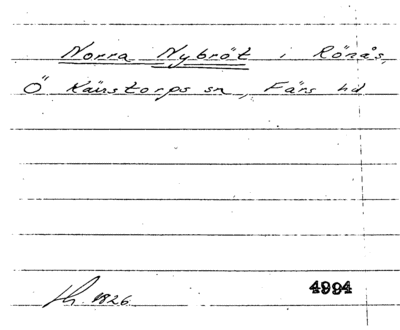 Norra Nybröt i Rönås,
Ö Kärstorps sn, Färs hd
1826
4994